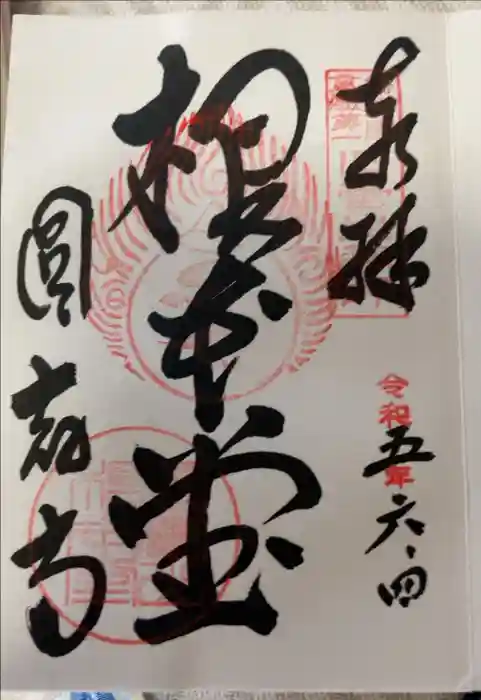 奉拝
令和五年六、四
根本堂
圓教寺